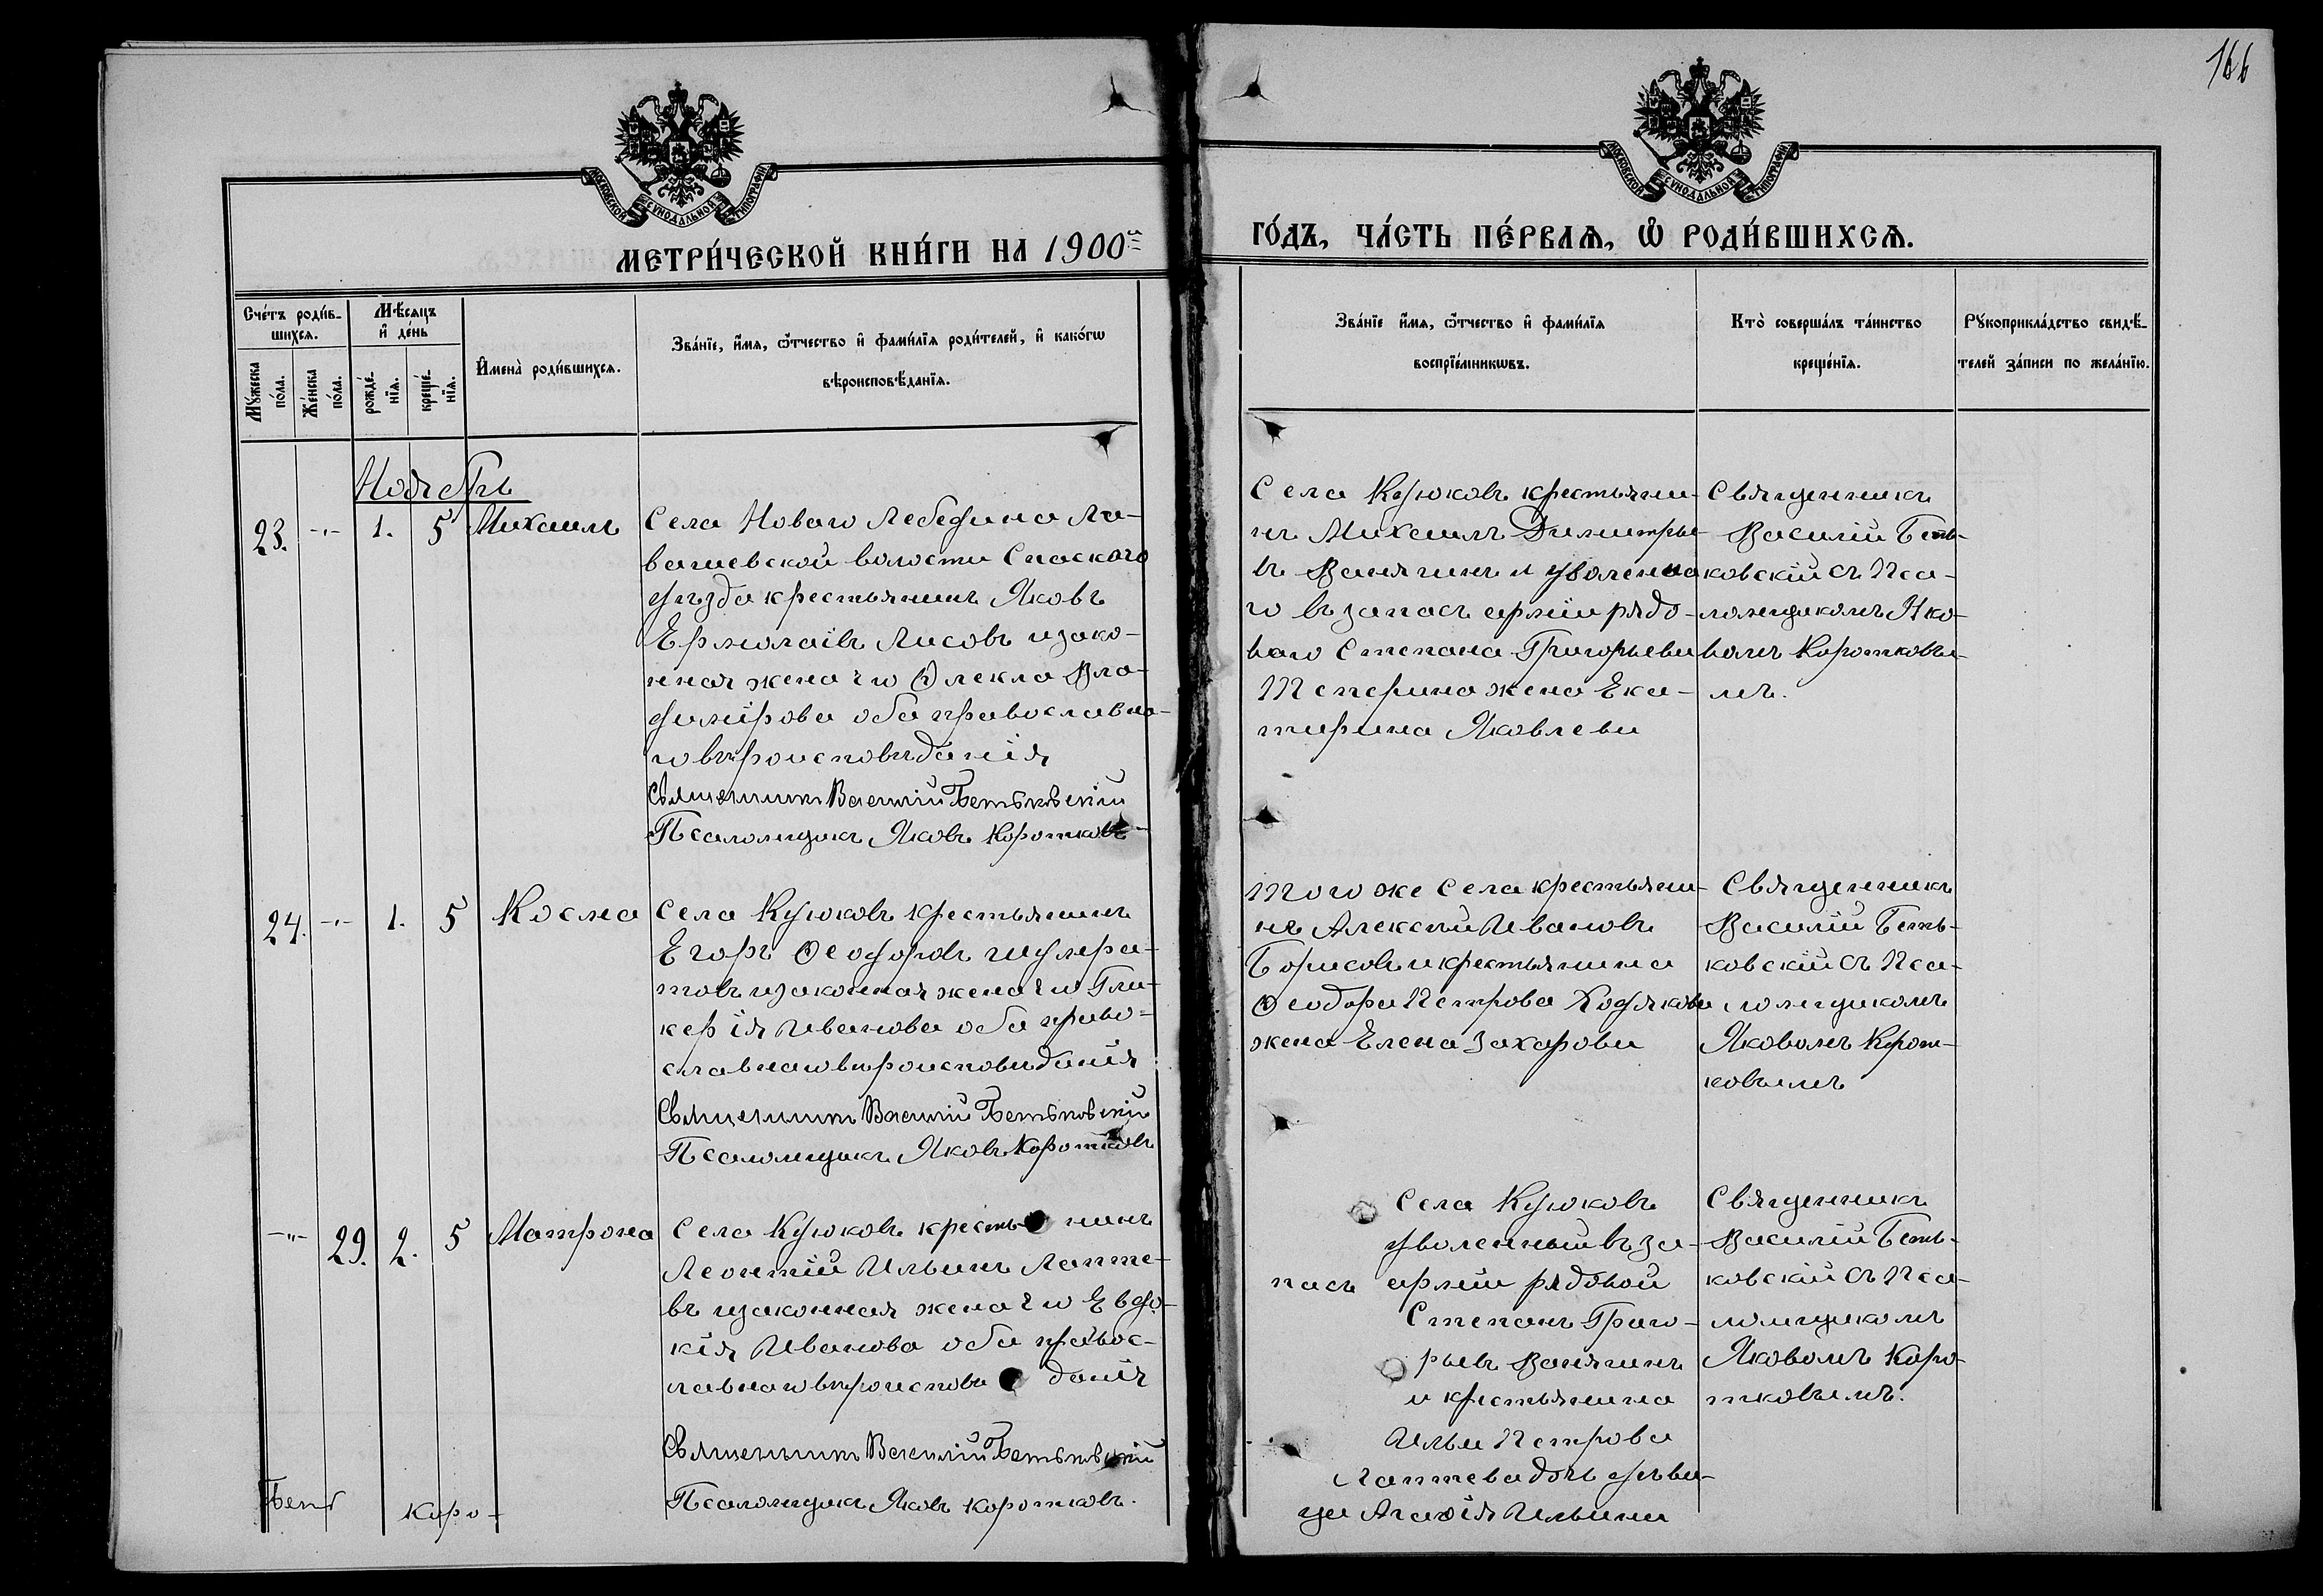 166
МОСКОВСКОЙ СУНОДАЛЬНОЙ ТИПОГРАФІИ
МОСКОВСКОЙ СУНОДАЛЬНОЙ ТИПОГРАФІИ
МЕТРИ́ЧЕСКОЙ КНИ́ГИ НА 1900й
ГО́ДЪ, ЧА́СТЬ ПЕ́РВАѦ, Ѡ҆ РОДИ́ВШИХСѦ.
Сче́тъ роди́в-
шихсѧ.
Мꙋ́жеска
по́ла.
Же́нска
по́ла.
Мѣ́сѧцъ
и҆ де́нь
рожде́-
нїѧ.
креще́-
нїѧ.
И҆мена̀ роди́вшихсѧ.
Зва́нїе, и҆́мѧ, ѻ҆́тчество и҆ фами́лїѧ роди́телей, и҆ како́гѡ
вѣроисповѣ́данїѧ.
Зва́нїе и҆́мѧ, ѻ҆́тчество и҆ фами́лїѧ
воспрїе́мникѡвъ.
Кто̀ соверша́лъ та́инство
креще́нїѧ.
Рꙋкоприкла́дство свидѣ́-
телей за́писи по жела́нїю.
Ноябрь
23.
-"-
1.
5
Михаилъ
Села Новаго Лебедина Ле-
вашевской волости Спаского
уѣзда крестьянинъ Яковъ
Ермолаівъ Лисовъ изако-
нная жена его Ѳекла Вла-
димірова оба православна-
го вѣроисповѣданія
Священникъ Василій Бетьковскій
Псаломщикъ Яковъ Коротковъ
Села Кујоковъ крестьяни-
нъ Михаилъ Димитріе-
въ Ванягинъ и уволенна
го въ запасъ арміи рядо-
ваго Степана Григорьева
Тетерина жена Ека-
терина Яковлева
Священникъ
Василій Беть-
ковскій съ Пса-
ломщикомъ Яко-
вомъ Коротковы-
мъ.
24.
-"-
1.
5
Косма
Села Кујоковъ крестьянинъ
Егоръ Ѳеодоровъ
изаконная жена его Гли-
керія Иванова оба право-
славнаго вѣроисповѣданія
Священникъ Василій Бетьковскій
Псаломщикъ Яковъ Коротковъ
Того же Села крестьяни-
нъ Алексій Ивановъ
Борисовъ и крестьянина
Ѳеодора Петрова Ходякова
жена Елена Захарова
Священникъ
Василій Беть-
ковскій съ Пса-
ломщикомъ
Яковомъ Корот-
ковымъ
-"-
29.
2.
5
Матрона
Села Кујоковъ кресть нинъ
Леонтій Ильинъ Лапте-
въ изаконная жена его Евдо-
кія Иванова оба правос-
лавнаго вѣроисповѣ данія
Священникъ Василій Бетьковскій
Псаломщикъ Яковъ Коротковъ.
Села Кујоковъ
уволенный въ за-
пасъ арміи рядовой
Степанъ Григо-
рьевъ Ванягинъ
и крестьянина
Ильи Петрова
Лаптева дочь дѣви-
ца Агафія Ильина
Священникъ
Василій Беть-
ковскій съ Пса-
ломщикомъ
Яковомъ Коро-
тковымъ.
Беть
Коро-